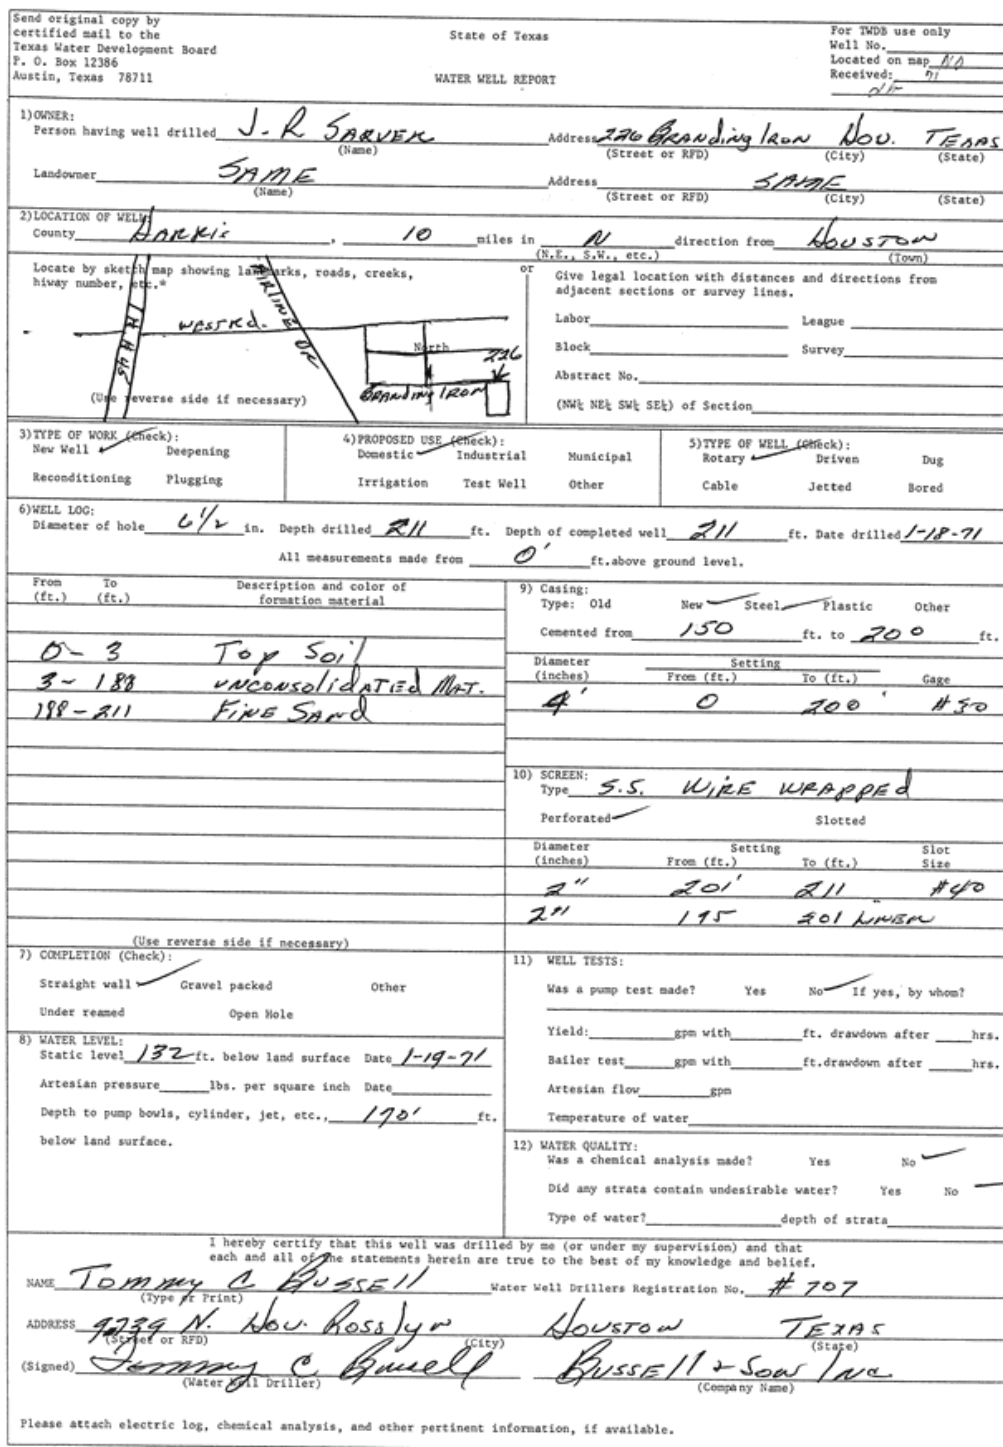 Send original copy by
certified mail to the
Texas Water Development Board
P. O. Box 12386
Austin, Texas 78711
State of Texas
WATER WELL REPORT
For TWDB use only
Well No.
Located on map NO
Received: 71
1)OWNER:
Person having well drilled J. R SARVER Address 226 BRANDING IRON HOU. TEXAS
(Name) (Street or RFD) (City) (State)
Landowner SAME Address SAME
(Name) (Street or RFD) (City) (State)
2)LOCATION OF WELL:
County HARRIS, 10 miles in N direction from HOUSTON
(N.E., S.W., etc.) (Town)
Locate by sketch map showing landmarks, roads, creeks,
hiway number, etc.*
or
Give legal location with distances and directions from
adjacent sections or survey lines.
Labor League
Block Survey
Abstract No.
(NW¼ NE¼ SW¼ SE¼) of Section
AIRLINE DR
WEST Rd.
North
226
BRANDING IRON
(Use reverse side if necessary)
3)TYPE OF WORK (Check):
New Well ✓ Deepening
Reconditioning Plugging
4)PROPOSED USE (Check):
Domestic ✓ Industrial Municipal
Irrigation Test Well Other
5)TYPE OF WELL (Check):
Rotary ✓ Driven Dug
Cable Jetted Bored
6)WELL LOG:
Diameter of hole 6 1/2 in. Depth drilled 211 ft. Depth of completed well 211 ft. Date drilled 1-18-71
All measurements made from 0' ft.above ground level.
From To Description and color of
(ft.) (ft.) formation material
0- 3 Top Soil
3- 188 UNCONSolidATEd MAT.
188-211 FINE SANd
(Use reverse side if necessary)
9) Casing:
Type: Old New ✓ Steel ✓ Plastic Other
Cemented from 150 ft. to 200 ft.
Diameter Setting
(inches) From (ft.) To (ft.) Gage
4" 0 200'
10) SCREEN:
Type S.S. WIRE WRAPPEd
Perforated ✓ Slotted
Diameter Setting Slot
(inches) From (ft.) To (ft.) Size
2" 201' 211 #40
2" 195 201 LINER
7) COMPLETION (Check):
Straight wall ✓ Gravel packed Other
Under reamed Open Hole
8) WATER LEVEL:
Static level 132 ft. below land surface Date 1-19-71
Artesian pressure lbs. per square inch Date
Depth to pump bowls, cylinder, jet, etc., 170' ft.
below land surface.
11) WELL TESTS:
Was a pump test made? Yes No ✓ If yes, by whom?
Yield: gpm with ft. drawdown after hrs.
Bailer test gpm with ft.drawdown after hrs.
Artesian flow gpm
Temperature of water
12) WATER QUALITY:
Was a chemical analysis made? Yes No ✓
Did any strata contain undesirable water? Yes No ✓
Type of water? depth of strata
I hereby certify that this well was drilled by me (or under my supervision) and that
each and all of the statements herein are true to the best of my knowledge and belief.
NAME Tommy C BUSSEll Water Well Drillers Registration No. # 707
(Type or Print)
ADDRESS 9239 N. Hou. Rosslyn HOUSTON TEXAS
(Street or RFD) (City) (State)
(Signed) Tommy C Bussell BUSSEll & Sons INC
(Water Well Driller) (Company Name)
Please attach electric log, chemical analysis, and other pertinent information, if available.